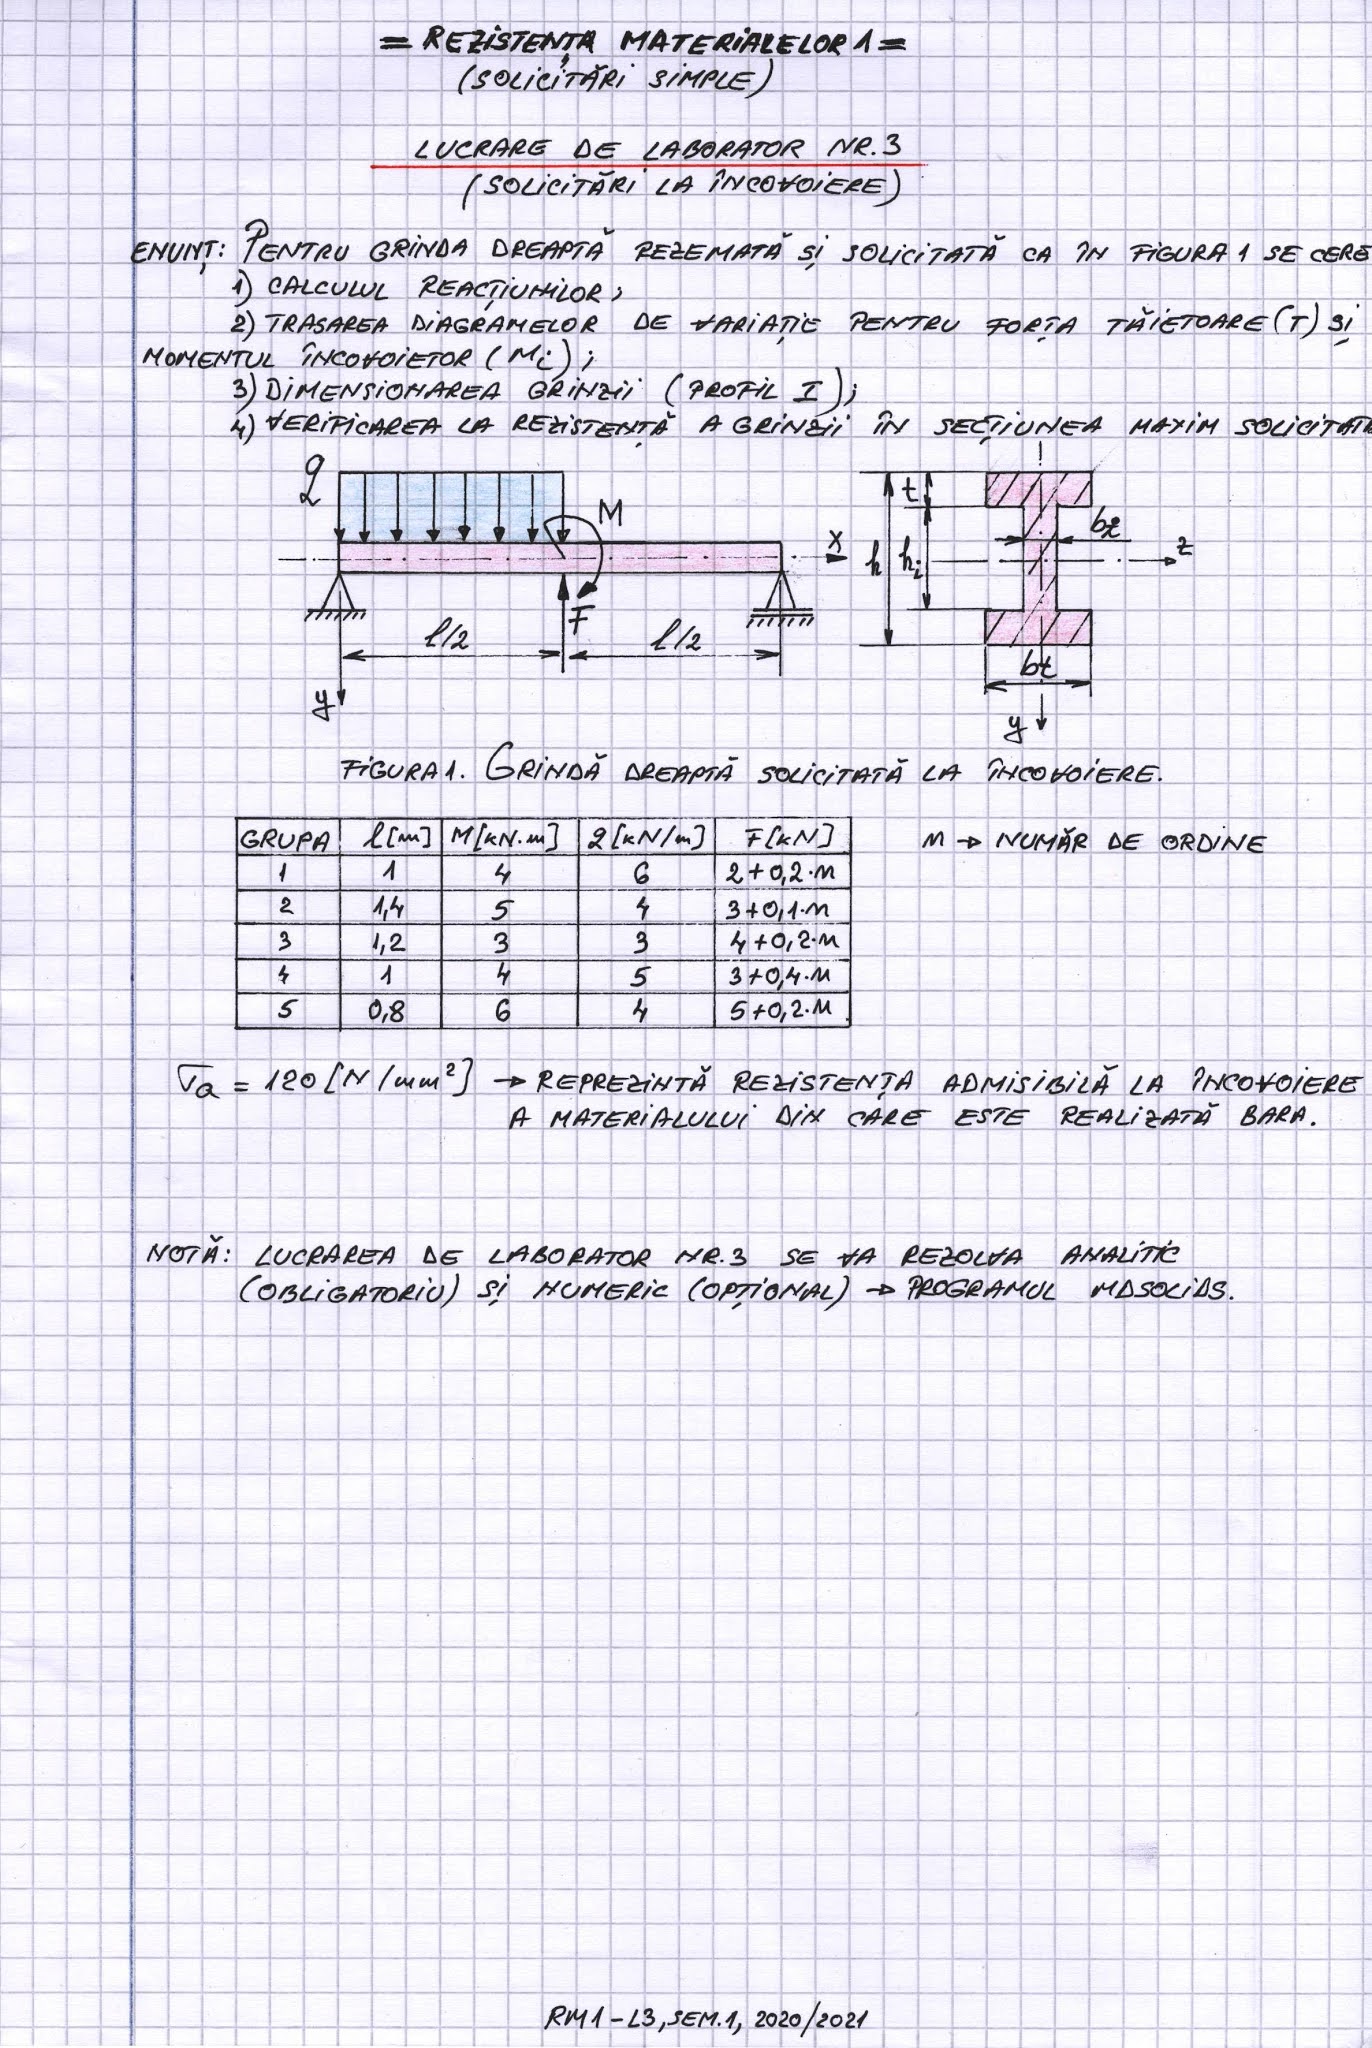 = REZISTENȚA MATERIALELOR 1 =
(SOLICITĂRI SIMPLE)
LUCRARE DE LABORATOR NR.3
(SOLICITĂRI LA ÎNCOVOIERE)
ENUNȚ: PENTRU GRINDA DREAPTĂ REZEMATĂ ȘI SOLICITATĂ CA ÎN FIGURA 1 SE CERE
1) CALCULUL REACȚIUNILOR;
2) TRASAREA DIAGRAMELOR DE VARIAȚIE PENTRU FORȚA TĂIETOARE (T) ȘI
MOMENTUL ÎNCOVOIETOR (Mi);
3) DIMENSIONAREA GRINZII (PROFIL I);
4) VERIFICAREA LA REZISTENȚĂ A GRINZII ÎN SECȚIUNEA MAXIM SOLICITATĂ
q M x F l/2 l/2 y
t h hi bi z bt y
FIGURA 1. GRINDĂ DREAPTĂ SOLICITATĂ LA ÎNCOVOIERE.
GRUPA l[m] M[kN.m] q[kN/m] F[kN]
1 1 4 6 2+0,2·n
2 1,4 5 4 3+0,1·n
3 1,2 3 3 4+0,2·n
4 1 4 5 3+0,4·n
5 0,8 6 4 5+0,2·n
n → NUMĂR DE ORDINE
σa = 120 [N/mm²] → REPREZINTĂ REZISTENȚA ADMISIBILĂ LA ÎNCOVOIERE
A MATERIALULUI DIN CARE ESTE REALIZATĂ BARA.
NOTĂ: LUCRAREA DE LABORATOR NR.3 SE VA REZOLVA ANALITIC
(OBLIGATORIU) ȘI NUMERIC (OPȚIONAL) → PROGRAMUL MDSOLIDS.
RM1-L3, SEM.1, 2020/2021